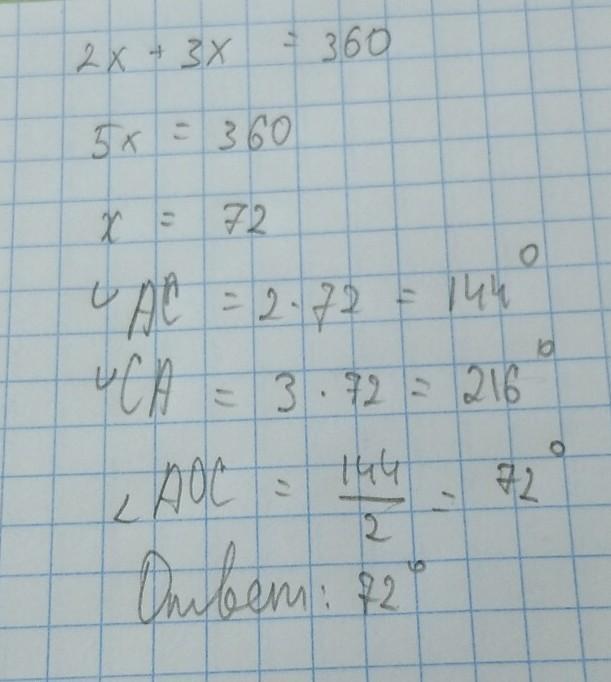 2x + 3x = 360
5x = 360
x = 72
◡AC = 2·72 = 144°
◡CA = 3·72 = 216°
∠AOC = 144/2 = 72°
Ответ: 72°